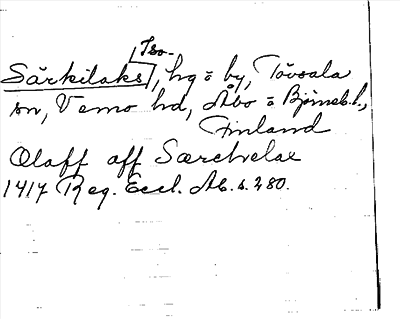 Iso-
Särkilaks, hg o by, Tövsala
sn, Vemo hd, Åbo o Björneb. l.,
Finland
Olaff aff Særchelax
1417 Reg. Eccl. Ab. s. 280.